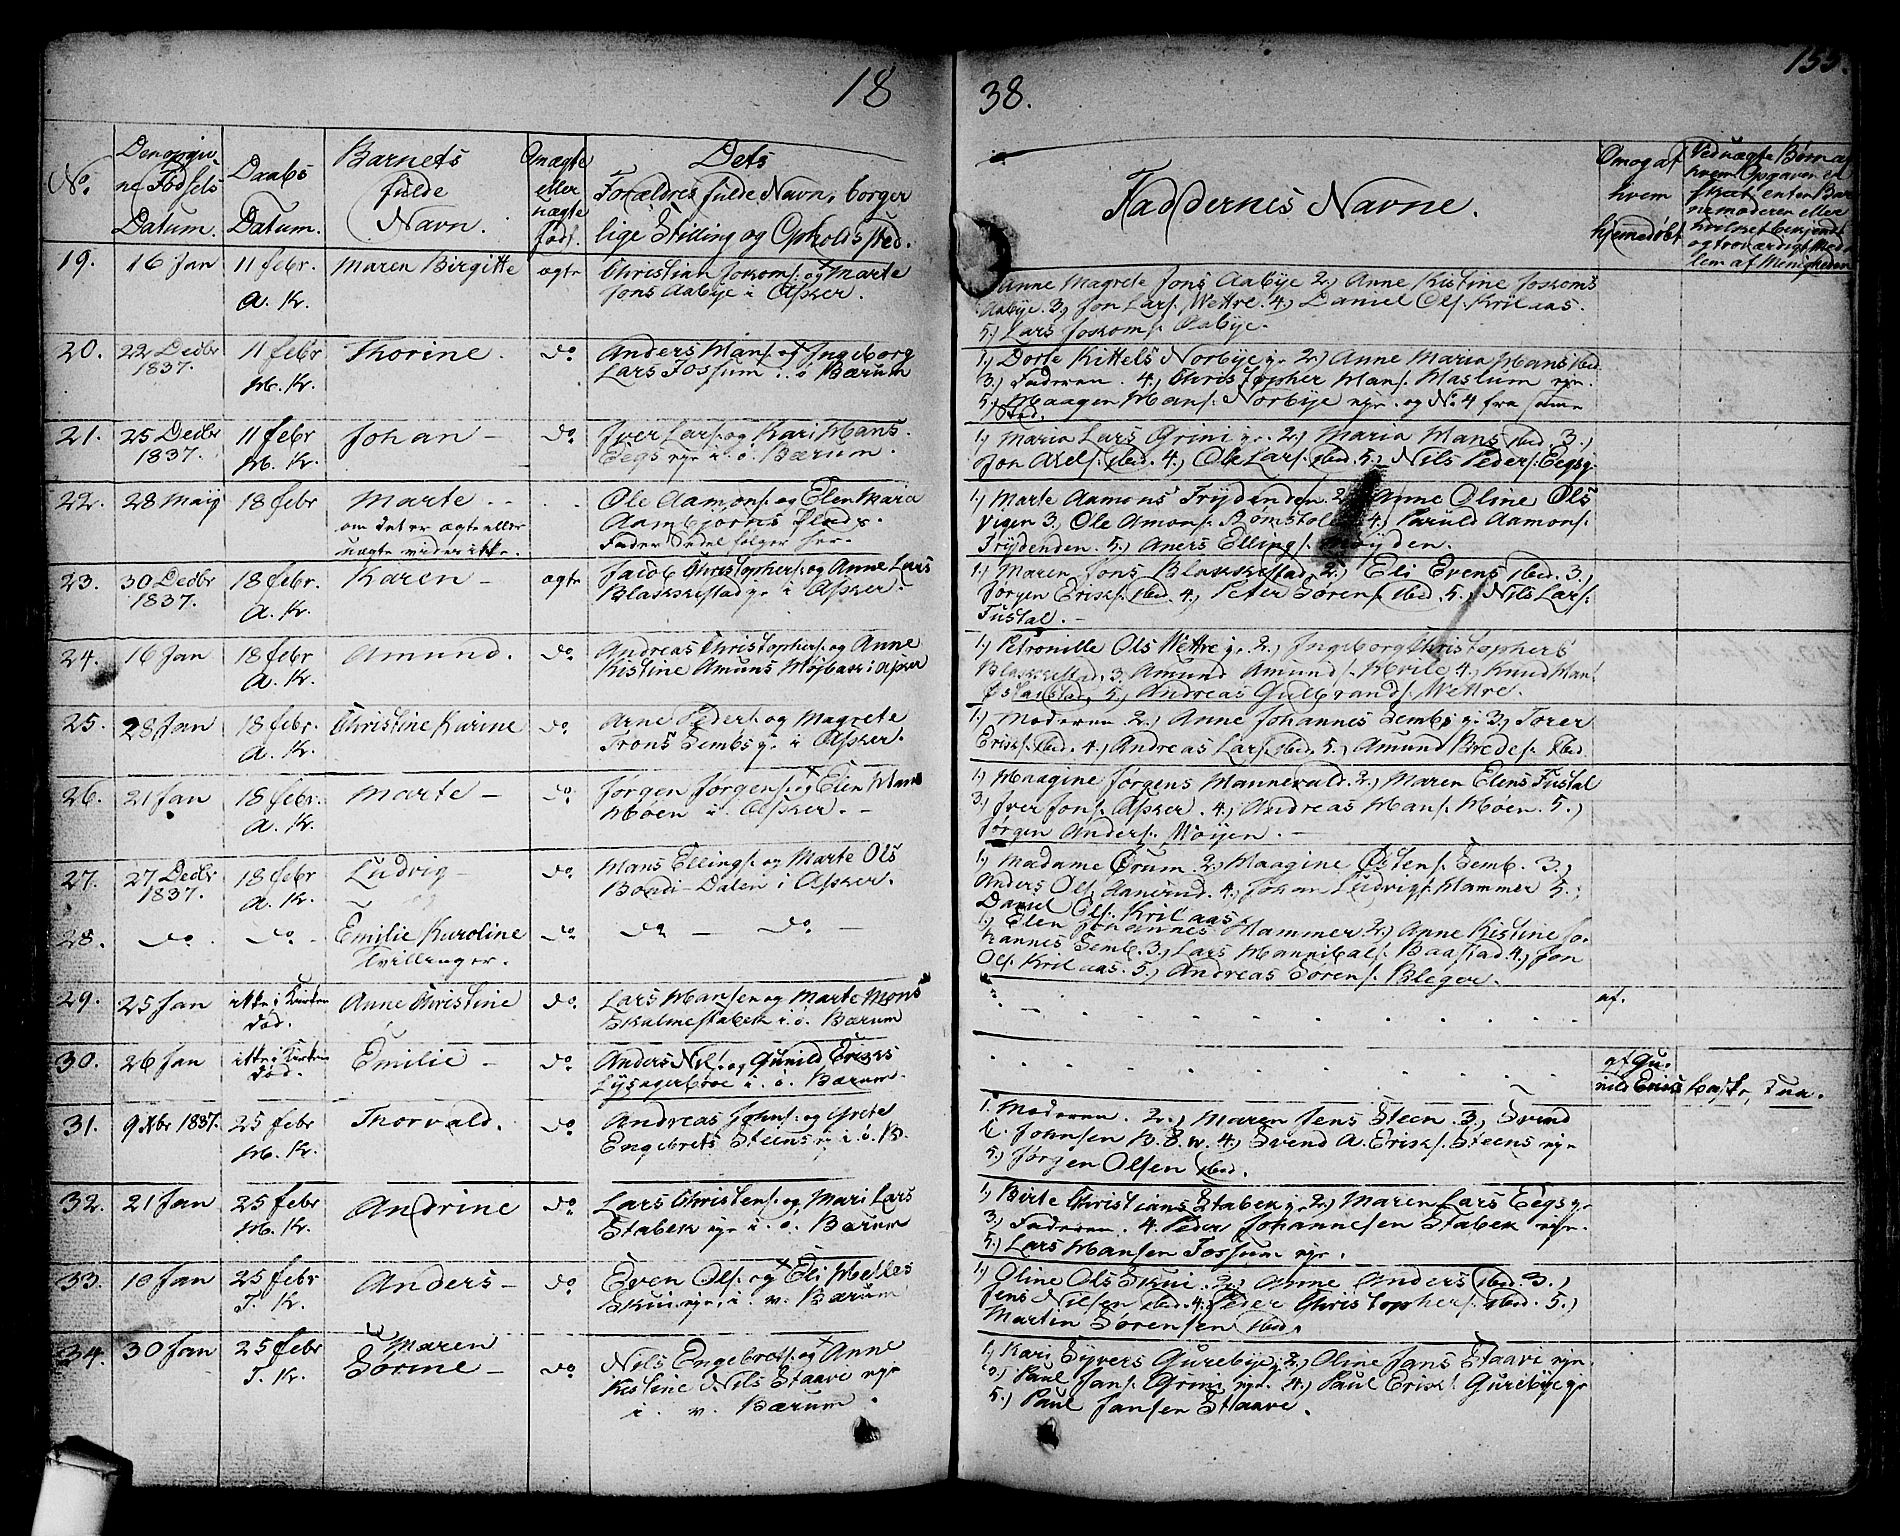 18
38.
155.
No.
Den opgiv-
ne Fødsels
Datum.
Daabs
Datum.
Barnets
fulde
Navn.
Om ægte
eller
uægte
født.
Dets
Forældres fulde Navn, borger
lige Stilling og Opholdssted.
Faddernes Navne.
Om og af
hvem
hjemedøbt
Ved uægte Børn af
hvem Opgaven er
skeet enten Bar
nemoderen eller
hvilket bekjendt
og troværdigt Med
lem af Menigheden
19.
16 Jan
11 febr.
A. K.
Maren Birgitte
ægte
Christian Joxoms. og Marte
Jons Aabÿe i Asker.
Anne Magrete Jons Aabÿe 2., Anne Kistine Joxoms
Aabÿe. 3., Jon Lars. Wettre. 4., Daniel Ols. Krilaas.
5., Lars Joxoms. Aabÿe.
20.
22 Decbr
1837.
11 febr
H. K.
Thorine.
do
Anders Hans. og Ingeborg
Lars Fossum i ø Bærum
1., Dorte Kittels Norbÿe g. 2., Anne Maria Hans ibid
3., Faderen. 4., Christopher Hans. Haslum
5., Haagen Hans. Norbÿe . og No 4 fra samme
Sted.
21.
25 Decbr
1837.
11 febr
H. K.
Johan -
do
Iver Lars. og Kari Hans.
Eegs i ø. Bærum.
1., Maria Lars Grini g. 2., Maria Hans ibid. 3.,
Jon Axels. ibid. 4., Ole Lars. ibid. 5., Nils Peders. Eegs g.
22.
28 Maÿ
18 febr
Marte - -
om det er ægte eller
uægte vides ikke.
Ole Aamons. og Elen Maria
Aambjørns
Fader Sedel følger her.
1., Marte Aamons Frÿdenden. 2., Anne Oline Ols
Vegen 3., Ole Amons. 4., Amons.
Frÿdenden. 5., Aners Ellings.
23.
30 Decbr
1837.
18 febr.
A. K.
Karen -
ægte
Jacob Christophers. og Anne Lars
Blakkestad g. i Asker.
1., Maren Jons Blakkestad. 2., Eli Evens ibid. 3.,
Jørgen Eriks. ibid. 4., Peter Sørens. ibid. 5., Nils Lars.
Fustal. -
24.
16 Jan
18 febr
A. K.
Amund.
do
Andreas Christophers. og Anne
Kistine Amuns Højbak i Asker
1., Petronille Ols Wettre g. 2., Ingeborg Christophers
Blakkestad. 3. Amund Amund. Hvile 4., Knud Hans
Østenstad. 5., Andreas Gulbrands. Wettre.
25.
28 Jan
18 febr.
A. K.
Christine Karine
do
Arne Peders. og Magrete
Trons Sembs g. i Asker.
1., Moderen 2., Anne Johannes Sembs g. 3., Torer
Eriks. ibid. 4., Andreas Lars. ibid. 5., Amund Bredes. ibid
26.
21 Jan
18 febr.
A. K.
Marte -
do
Jørgen Jørgens. og Elen Hans
Høen i Asker. -
1., Haagine Jørgens Mannevald. 2., Maren Elens Fustal
3., Iver Jons. Asker. 4., Andreas Hans. Høen. 5.,
Jørgen Anders. Møÿen. -
27.
27 Decbr
1837.
18 febr
A. K.
Ludvig -
og
do
Hans Ellings. og Marte Ols
Bondi-Dalen i Asker.
1., Madame Ørum. 2., Haagine Østens. Semb. 3.,
Anders Ols. Aanerud. 4., Johan Ludvigs. Hammer 5.,
Daniel Ols. Krilaas.
28.
do.
do -
Emilie Karoline
Tvillinger.
do
do - do -
1., Elen Johannes Hammer 2., Anne Kistine Jo-
hannes Semb. 3., Lars Hannibals. Baastad. 4., Jon
Ols. Krilaas. 5., Andreas Sørens. Bleger.
29.
25 Jan
ikke i Kirken
død.
Anne Christine
do
Lars Hansen og Marte Mons
Skalmestabek i ø. Bærum
af.
30.
26 Jan
ikke i Kirken
død.
Emilie -
do
Anders Nils. og Gunild Eriks
Lÿsagerbroe i. ø. Bærum.
af Gu-
nild Eriks
31.
9 Xbr 1837.
25 febr
H. K.
Thorvald.
do
Andreas Johns. og Grete
Engebrets Steens i ø. B.
1. Moderen. 2., Maren Jens Steen. 3., Svend
C. Johnsen B. S. W. 4., Svend A. Eriks. Steens
5., Jørgen Olsen ibid.
32.
21 Jan
25 febr
H. K.
Andrine
do
Lars Christens. og Mari Lars
Stabek i ø. Bærum
1., Birte Christians Stabek g. 2., Maren Lars Eegs g.
3., Faderen. 4. Peder Johannesen Stabek
5., Lars Hansen Fossum
33.
10 Jan
25 febr
T. K.
Anders -
do
Even Ols. og Eli Helles
Skui i. v. Bærum
1., Oline Ols Skui. 2., Anne Anders ibid. 3.,
Jens Nilsen ibid. 4. Peder Christophers. ibid. 5.,
Martin Sørensen ibid.
34.
30 Jan
25 febr
T. K.
Maren
Sørine -
do
Nils Engebrets. og Anne
Kistine Nils Staave
i. v. Bærum.
1., Kari Sÿvers Gurebÿe g. 2., Oline Jans Staavi
3., Paul Jans. Grini 4., Paul Eriks. Gurebÿe g.
5., Paul Jansen Staave.